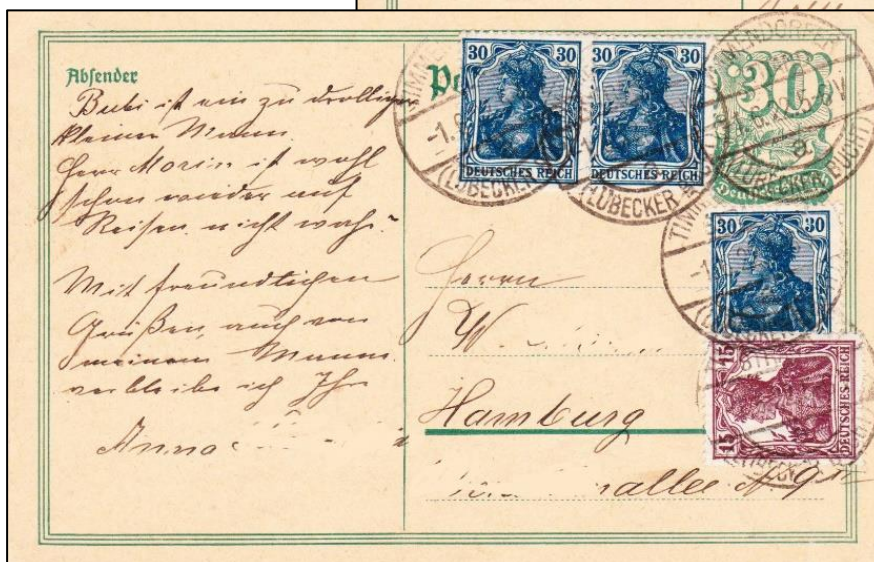 Absender
Bubi ist ein zu drolliger
kleiner Mann.
Herr Morin ist wohl
schon wieder auf
Reisen, nicht wahr?
Mit freundlichen
Grüßen, auch von
meinem Mann
verbleibe ich Ihre
Anna
Po
30 30
DEUTSCHES REICH
30 30
DEUTSCHES REICH
30
TIMMENDORFER
(LÜBECKER BUCHT)
30 30
15 15
DEUTSCHES REICH
Herrn
W
Hamburg
allee N. 9